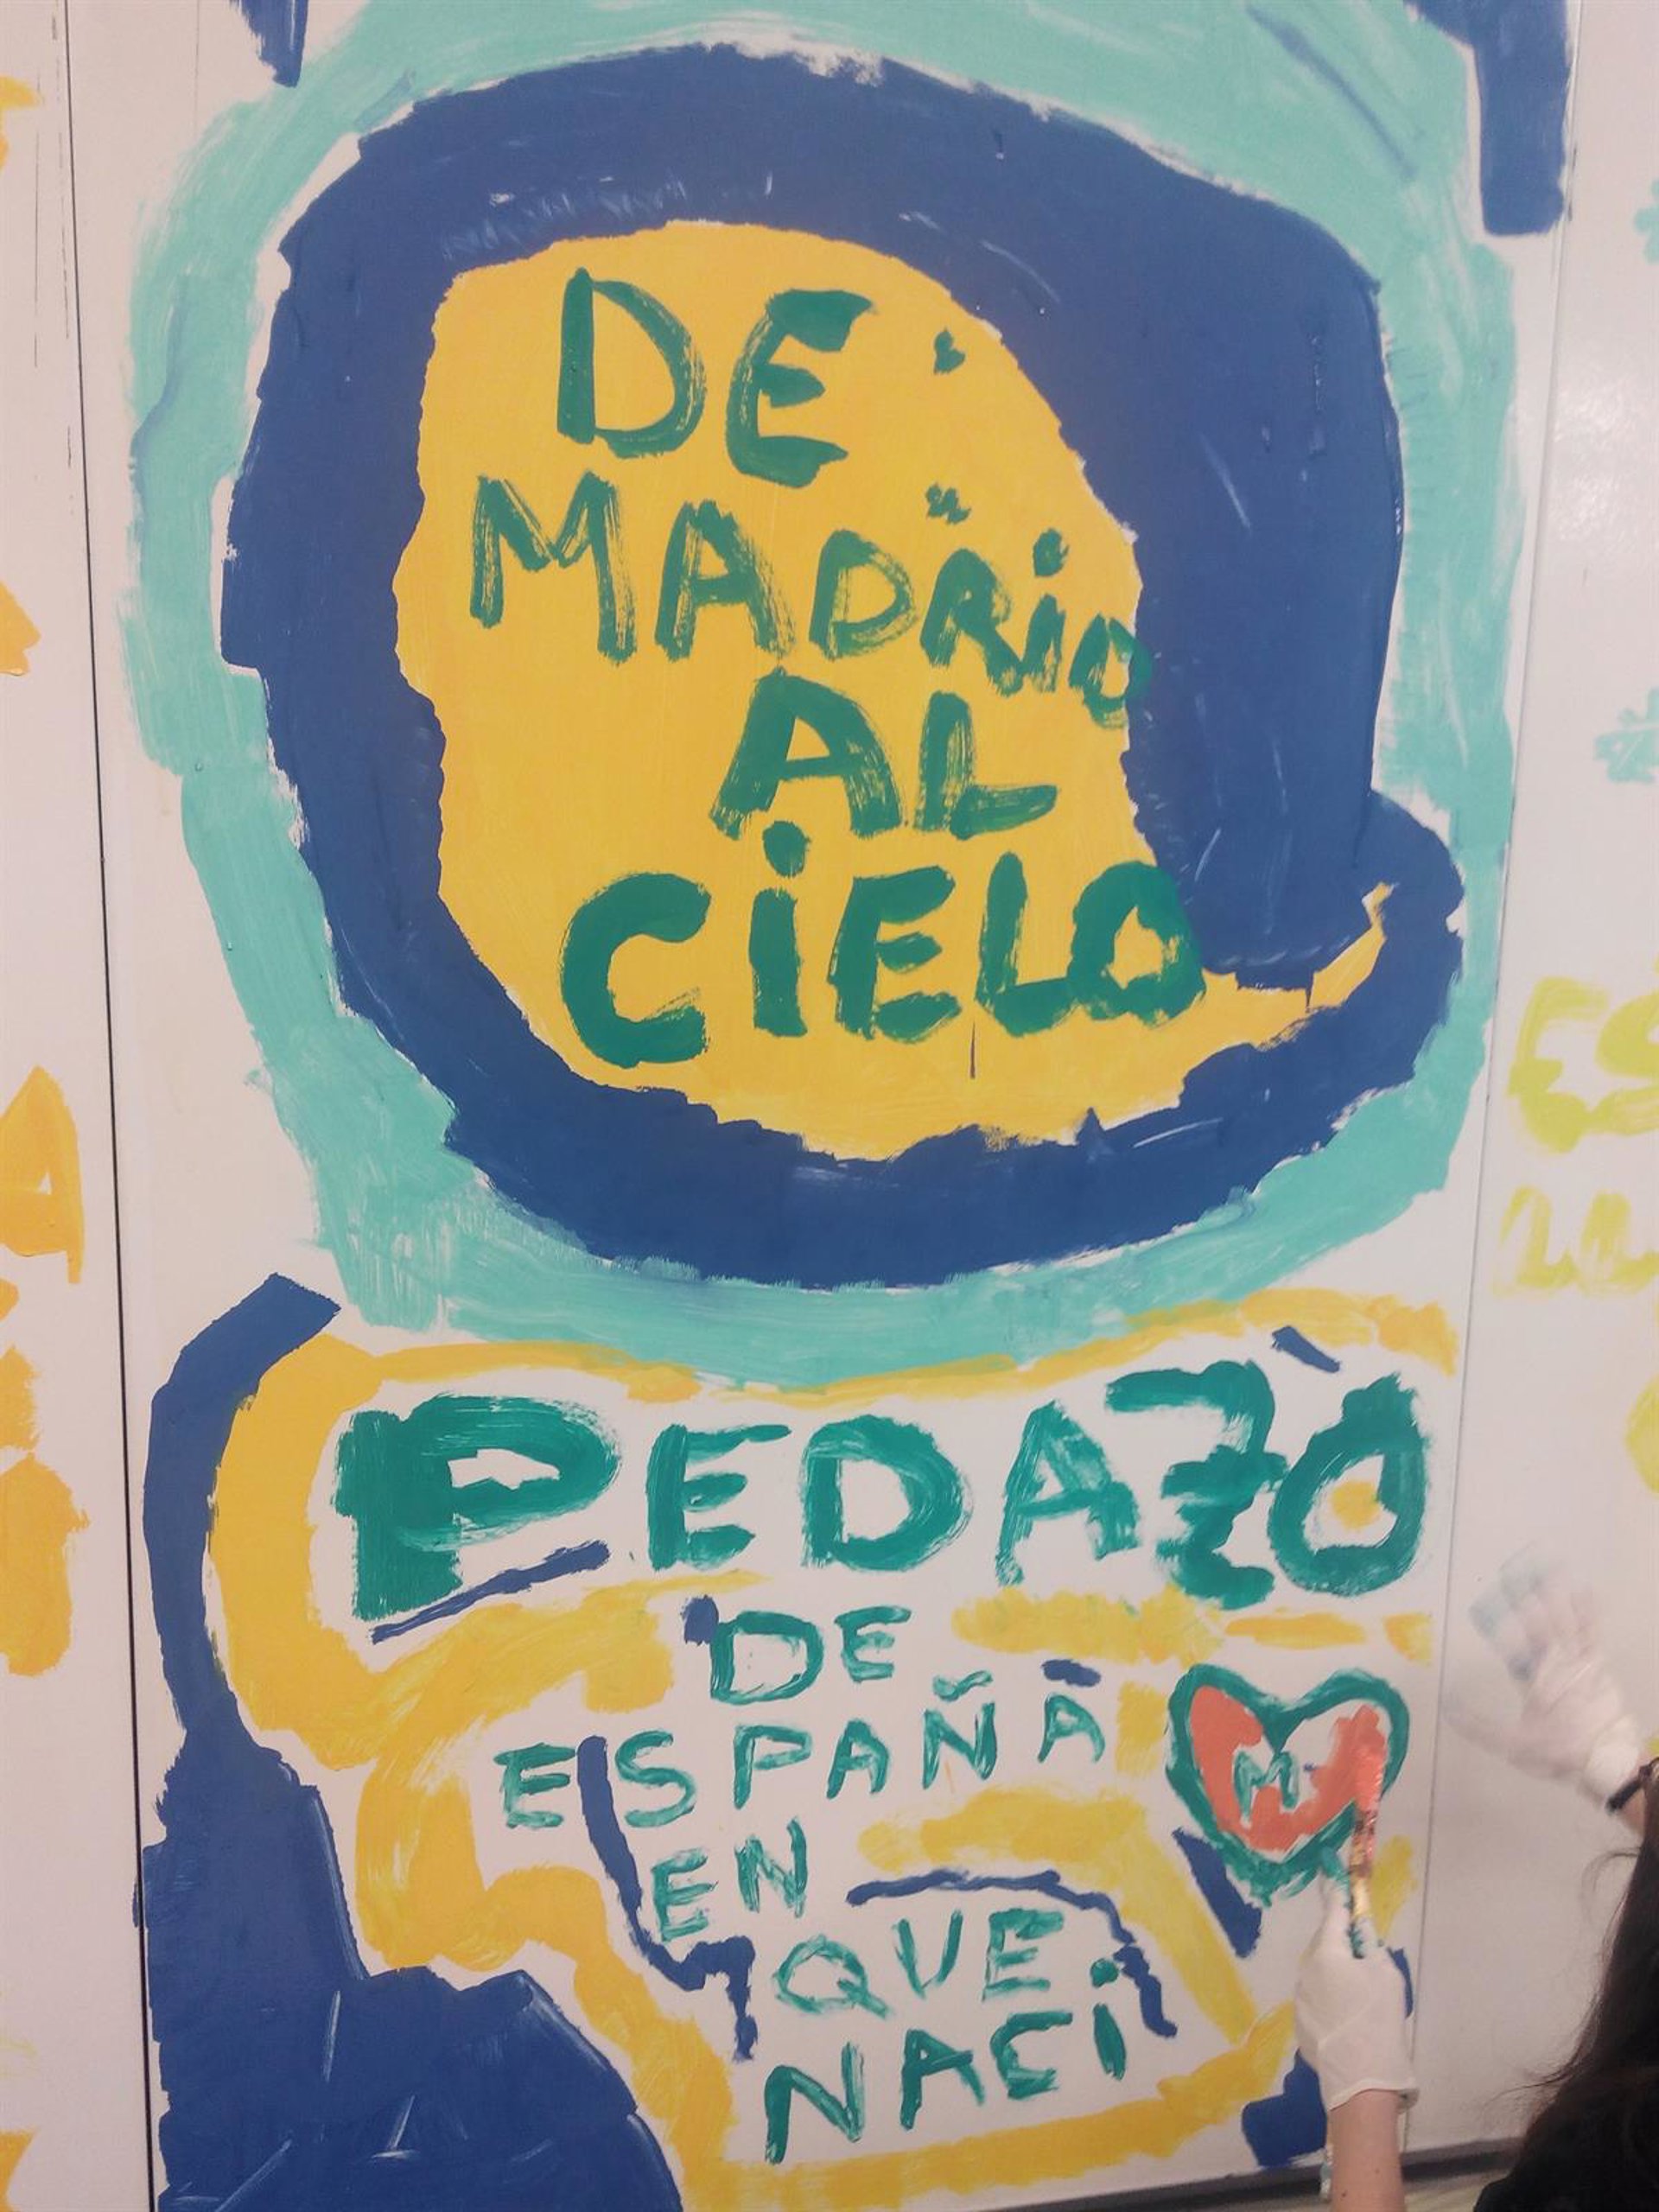 DE
MADRiD
AL
CiELO
PEDAZO
DE
ESPAÑA
M
EN
QUE
NACi
ES